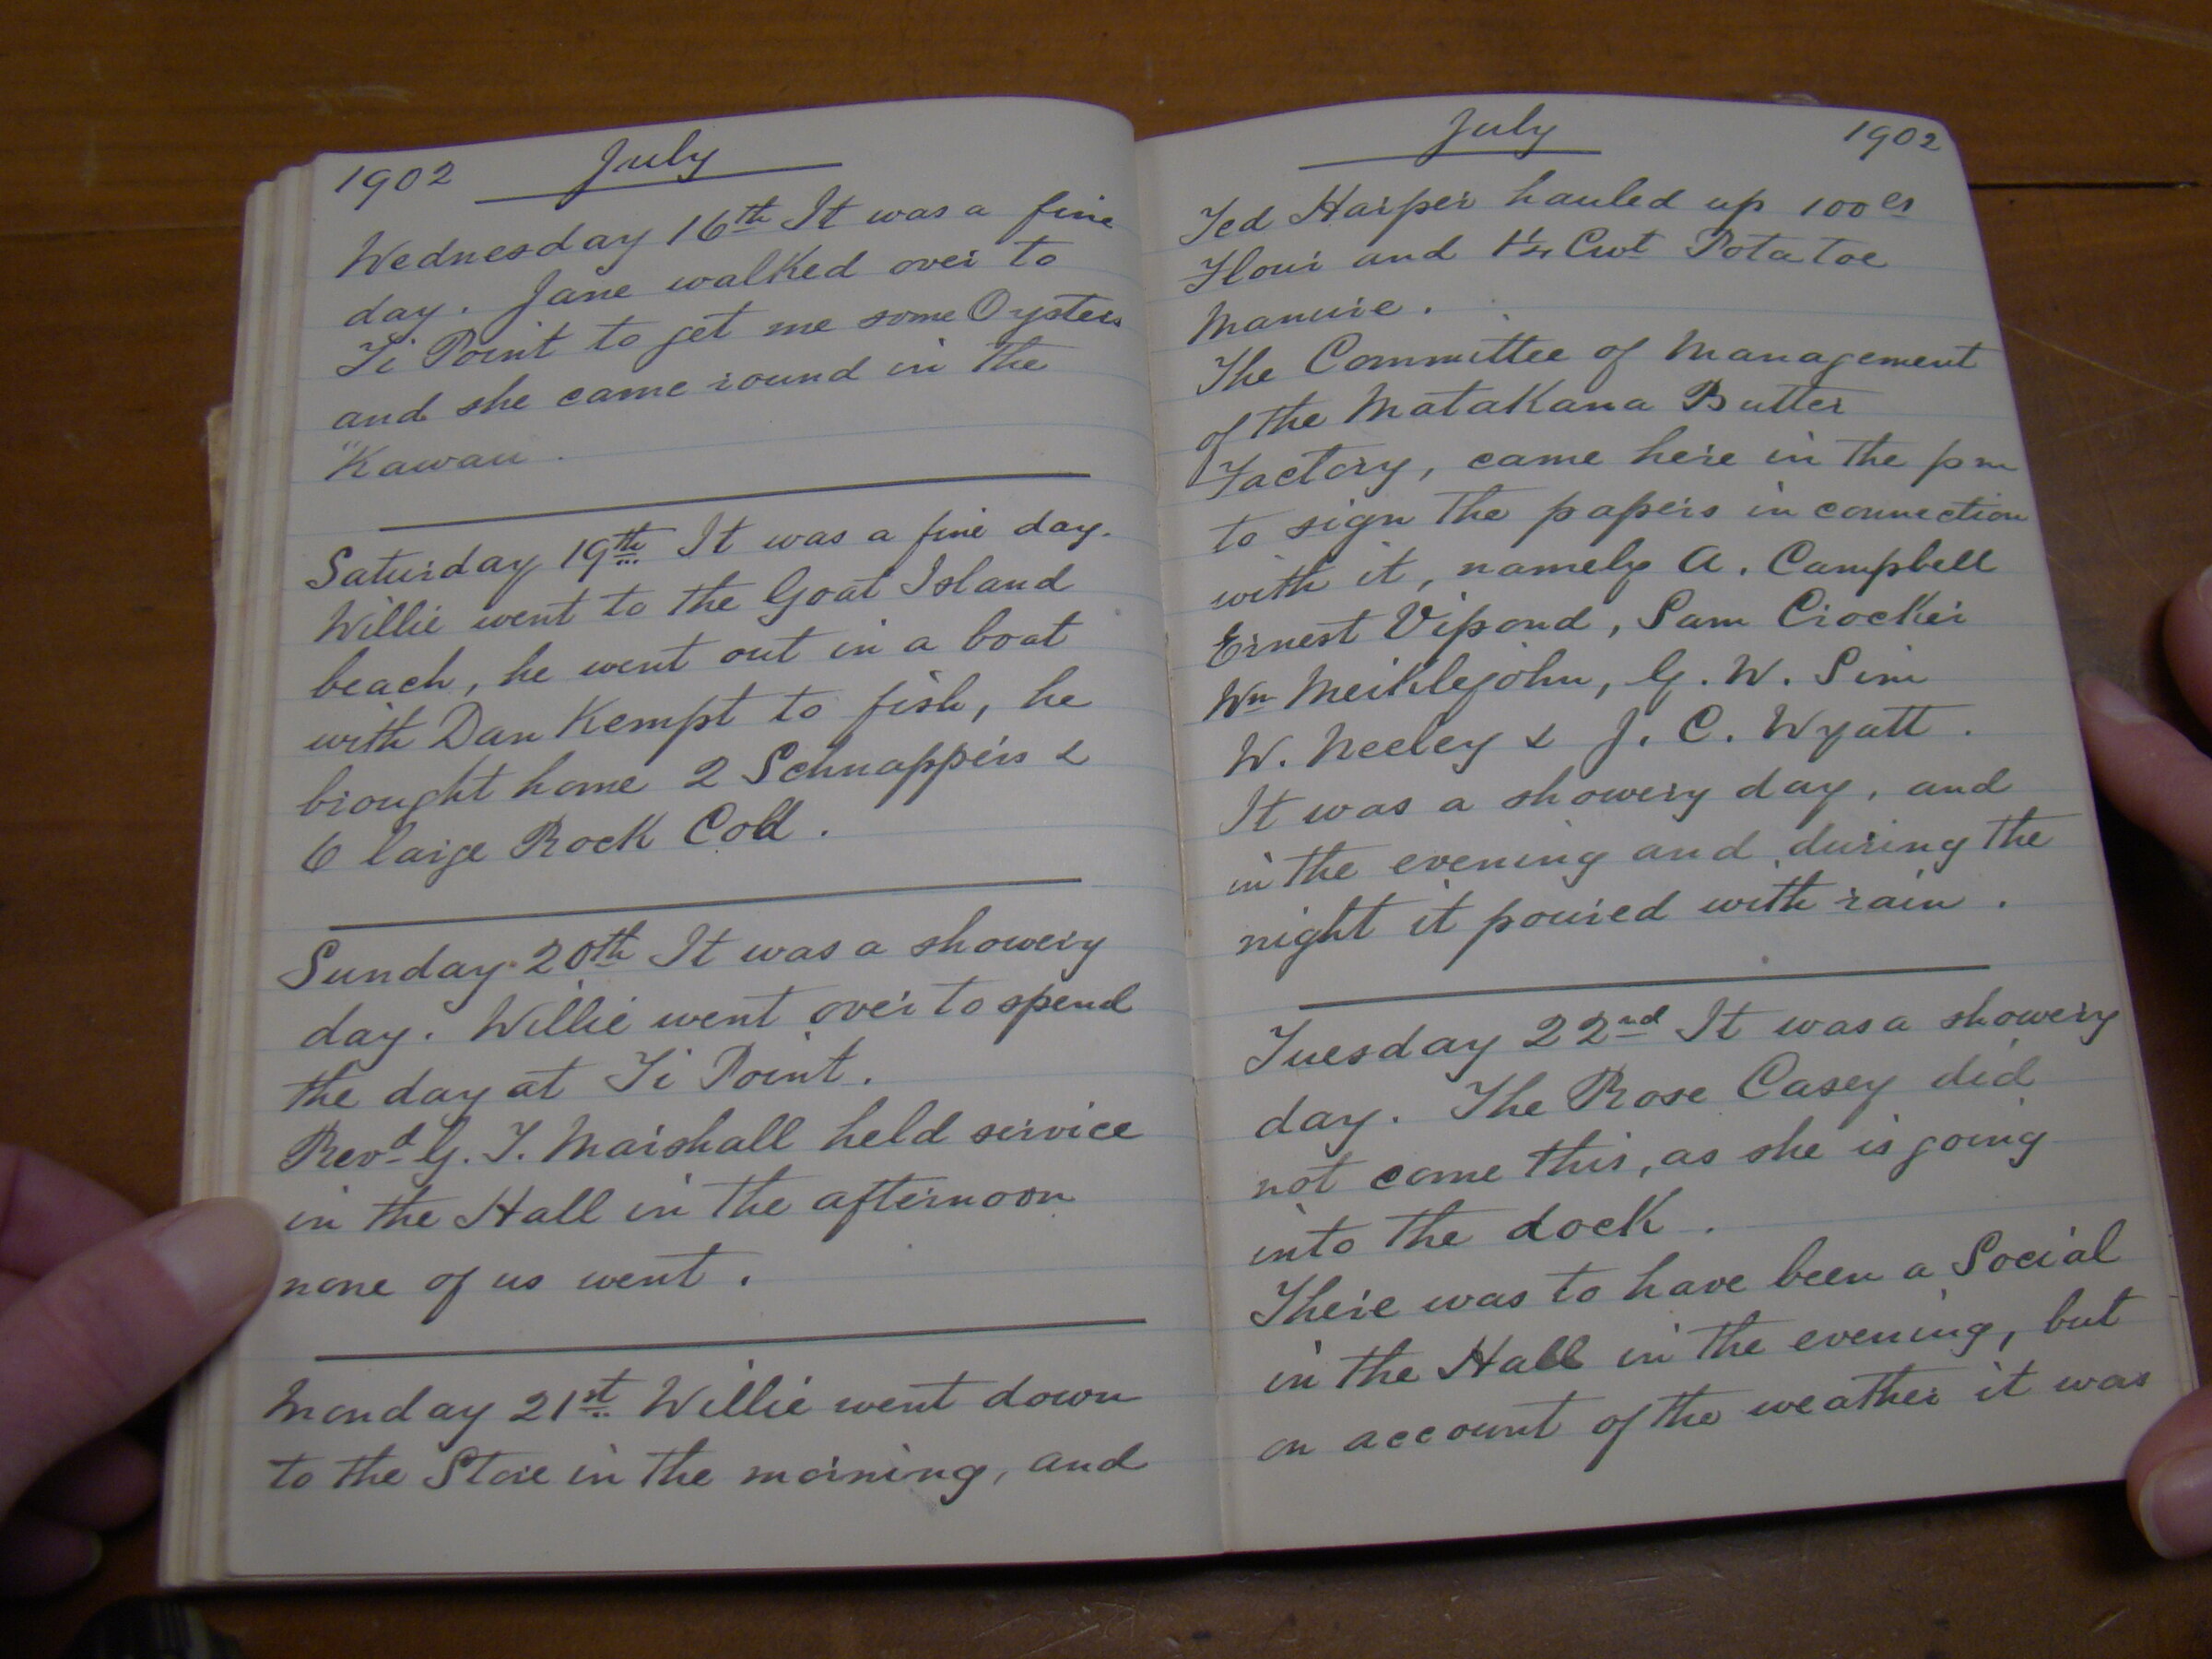 1902 July
Wednesday 16th It was a fine
day. Jane walked over to
Ti Point to get me some Oysters
and she came round in the
"Kawau.
Saturday 19th It was a fine day.
Willie went to the Goat Island
beach, he went out in a boat
with Dan Kempt to fish, he
brought home 2 Schnappers &
6 large Rock Cod.
Sunday 20th It was a showery
day. Willie went over to spend
the day at Ti Point.
Revd G. T. Marshall held service
in the Hall in the afternoon
none of us went.
Monday 21st Willie went down
to the Store in the morning, and
July 1902
Ted Harper hauled up 100
Flour and 1¼ Cwt Potatoe
Manure.
The Committee of Management
of the Matakana Butter
Factory, came here in the pm
to sign the papers in connection
with it, namely A. Campbell
Ernest Vipond, Sam Crocker
Wm Meiklejohn, G. W. Sim
W. Neeley & J. C. Wyatt.
It was a showery day, and
in the evening and during the
night it poured with rain.
Tuesday 22nd It was a showery
day. The Rose Casey did
not come this, as she is going
into the dock.
There was to have been a Social
in the Hall in the evening, but
on account of the weather it was